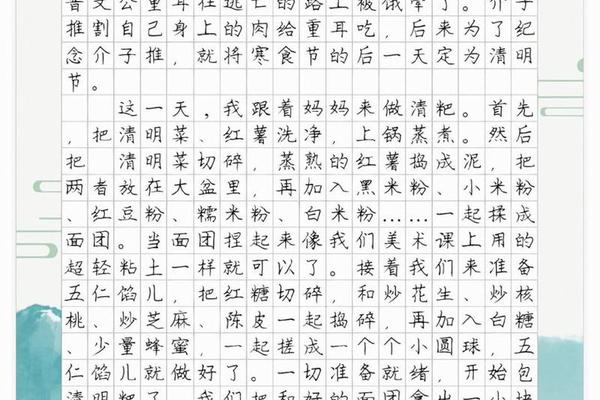 晋文公重耳在逃亡的路上被饿晕了。介子
推割自己身上的肉给重耳吃，后来为了纪
念介子推，就将寒食节的后一天定为清明
节。
这一天，我跟着妈妈来做清粑。首先
，把清明菜、红薯洗净，上锅蒸煮。然后
把 清明菜切碎，蒸熟的红薯捣成泥，把
两者放在大盆里，再加入黑米粉、小米粉
、红豆粉、糯米粉、白米粉……一起揉成
面团。当面团捏起来像我们美术课上用的
超轻粘土一样就可以了。接着我们来准备
五仁馅儿，把红糖切碎，和炒花生、炒核
桃、炒芝麻、陈皮一起捣碎，再加入白糖
、少量蜂蜜，一起搓成一个个小圆球，五
仁馅儿就做好了。一切准备就绪，开始包
清明粑了。我们把和好的面团拿出一小块